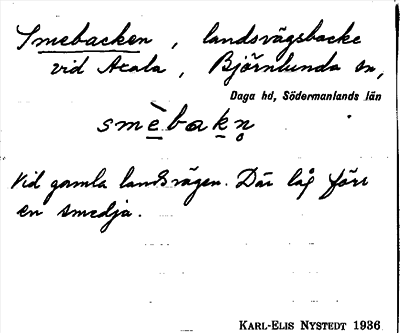 Smebacken, landsvägsbacke
vid Acala, Björnlunda sn,
Daga hd, Södermanlands län
smèbakn̥
Vid gamla landsvägen. Där låg förr
en smedja.
KARL-ELIS NYSTEDT 1936